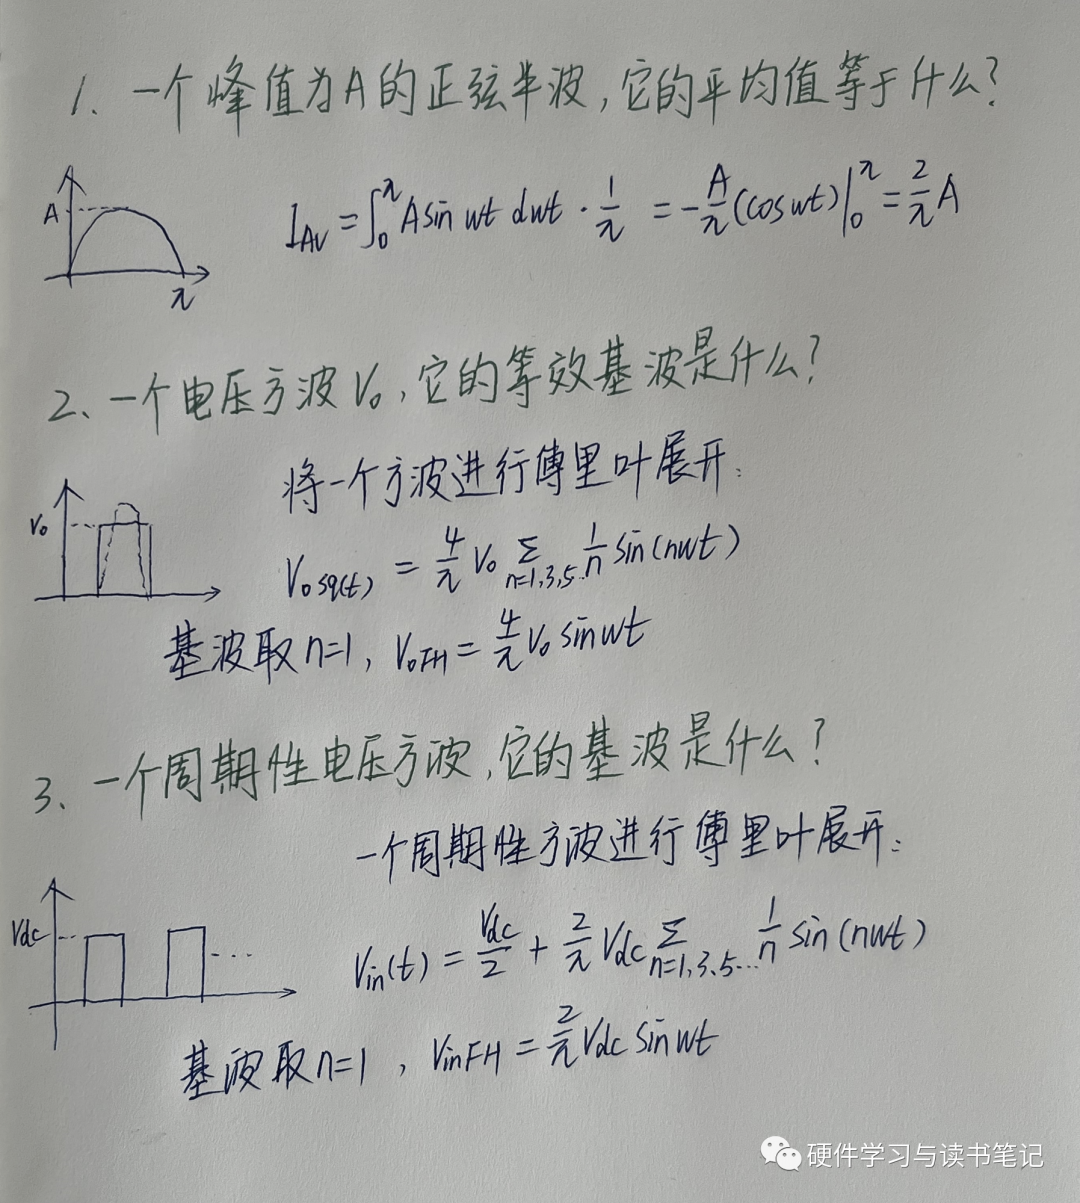 1、一个峰值为A的正弦半波，它的平均值等于什么？
A
π
I_AV = ∫₀^π A sin wt dwt · 1/π = -A/π (cos wt)|₀^π = 2/π A
2、一个电压方波 V₀，它的等效基波是什么？
将一个方波进行傅里叶展开：
V₀
V₀sq(t) = 4/π V₀ Σ_{n=1,3,5...} 1/n sin(nwt)
基波取 n=1，V₀FH = 4/π V₀ sin wt
3、一个周期性电压方波，它的基波是什么？
一个周期性方波进行傅里叶展开：
Vdc
...
Vin(t) = Vdc/2 + 2/π Vdc Σ_{n=1,3,5...} 1/n sin(nwt)
基波取 n=1，VinFH = 2/π Vdc sin wt
硬件学习与读书笔记